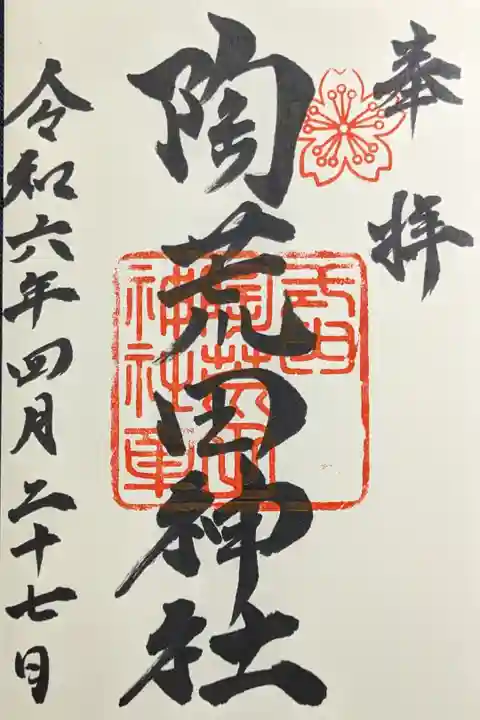 奉拝
陶荒田神社
令和六年四月二十七日
式内
陶荒田
神社印